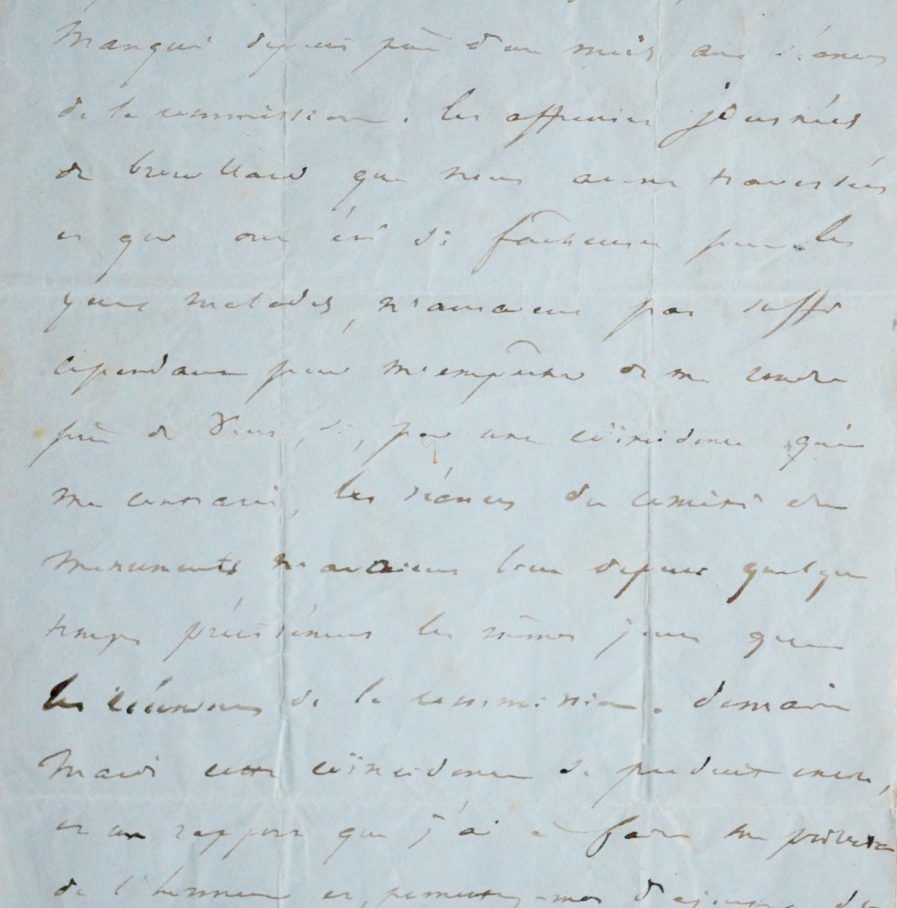 manqué depuis près d'un mois aux séances
de la commission. les affreuses journées
de brouillard que nous avons traversées
et qui ont été si fâcheuses pour les
yeux malades, n'auraient pas suffi
cependant pour m'empêcher de me rendre
près de vous, si, par une coïncidence qui
me contrarie, les séances du comité des
monuments n'avaient lieu depuis quelque
temps précisément les mêmes jours que
les réunions de la commission. demain
mardi cette coïncidence se produit encore,
et un rapport que j'ai à faire me privera
de l'honneur et, permettez-moi d'ajouter, du